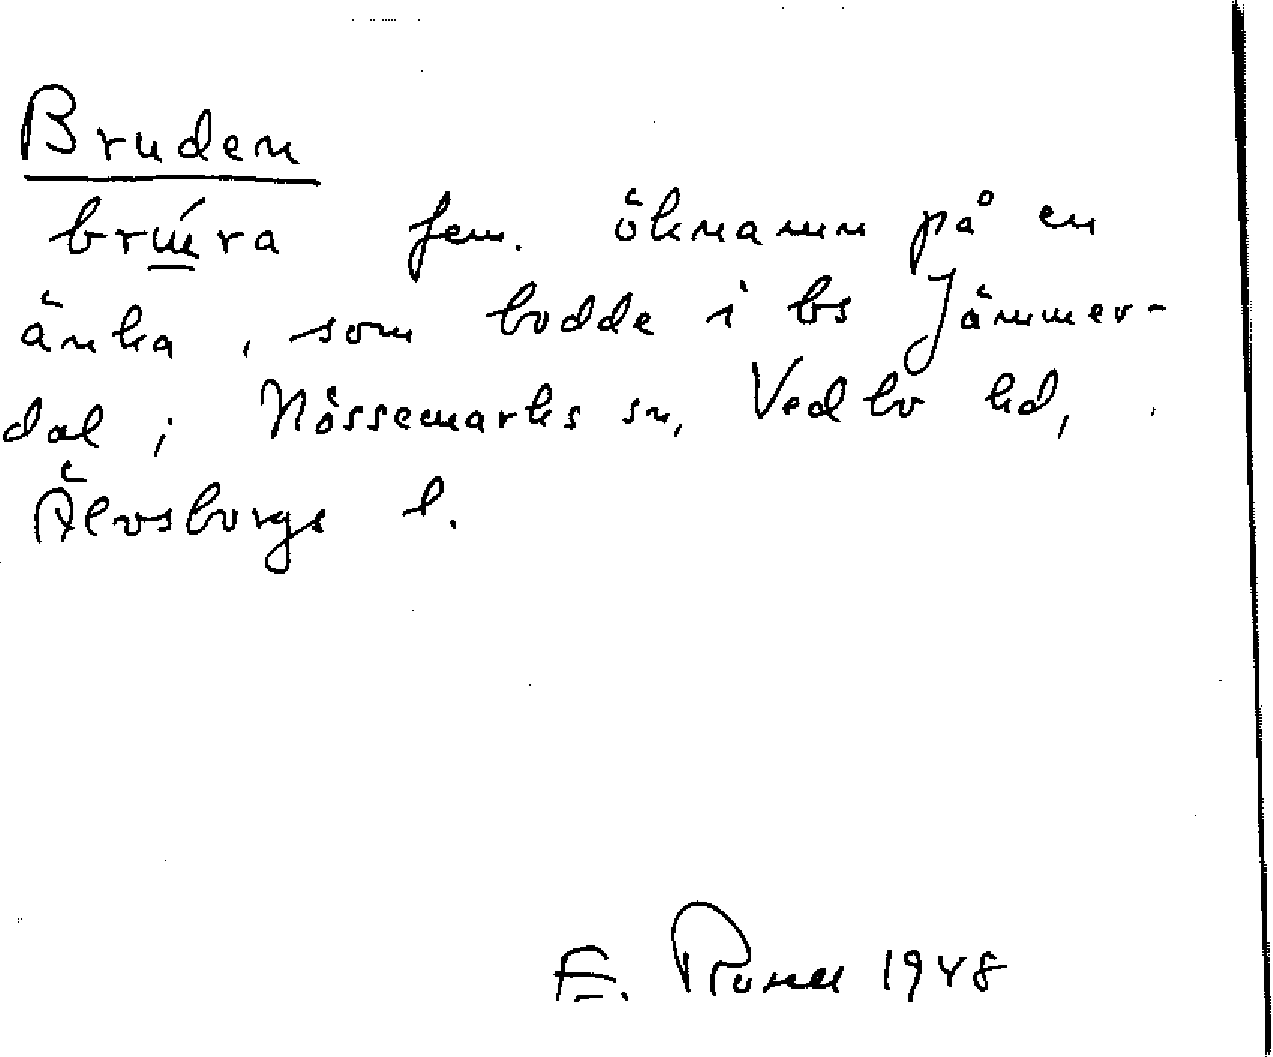 Bruden
brúra fem. öknamn på en
änka, som bodde i bs Jämmer-
dal i Nössemarks sn, Vedbo hd,
Älvsborgs l.
E. Rosell 1948